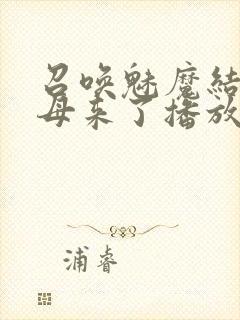 召唤魅魔结
母来了播放
浦睿